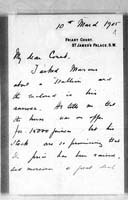 10th March 1905
FRIARY COURT,
ST JAMES'S PALACE, S.W.
My dear Count,
I asked Marcus
about a Stallion and
the enclosed is his
answer. He tells me that
the horse was on offer
for 15000 francs but his
stock are so promising that
the price has been raised,
and moreover a great deal